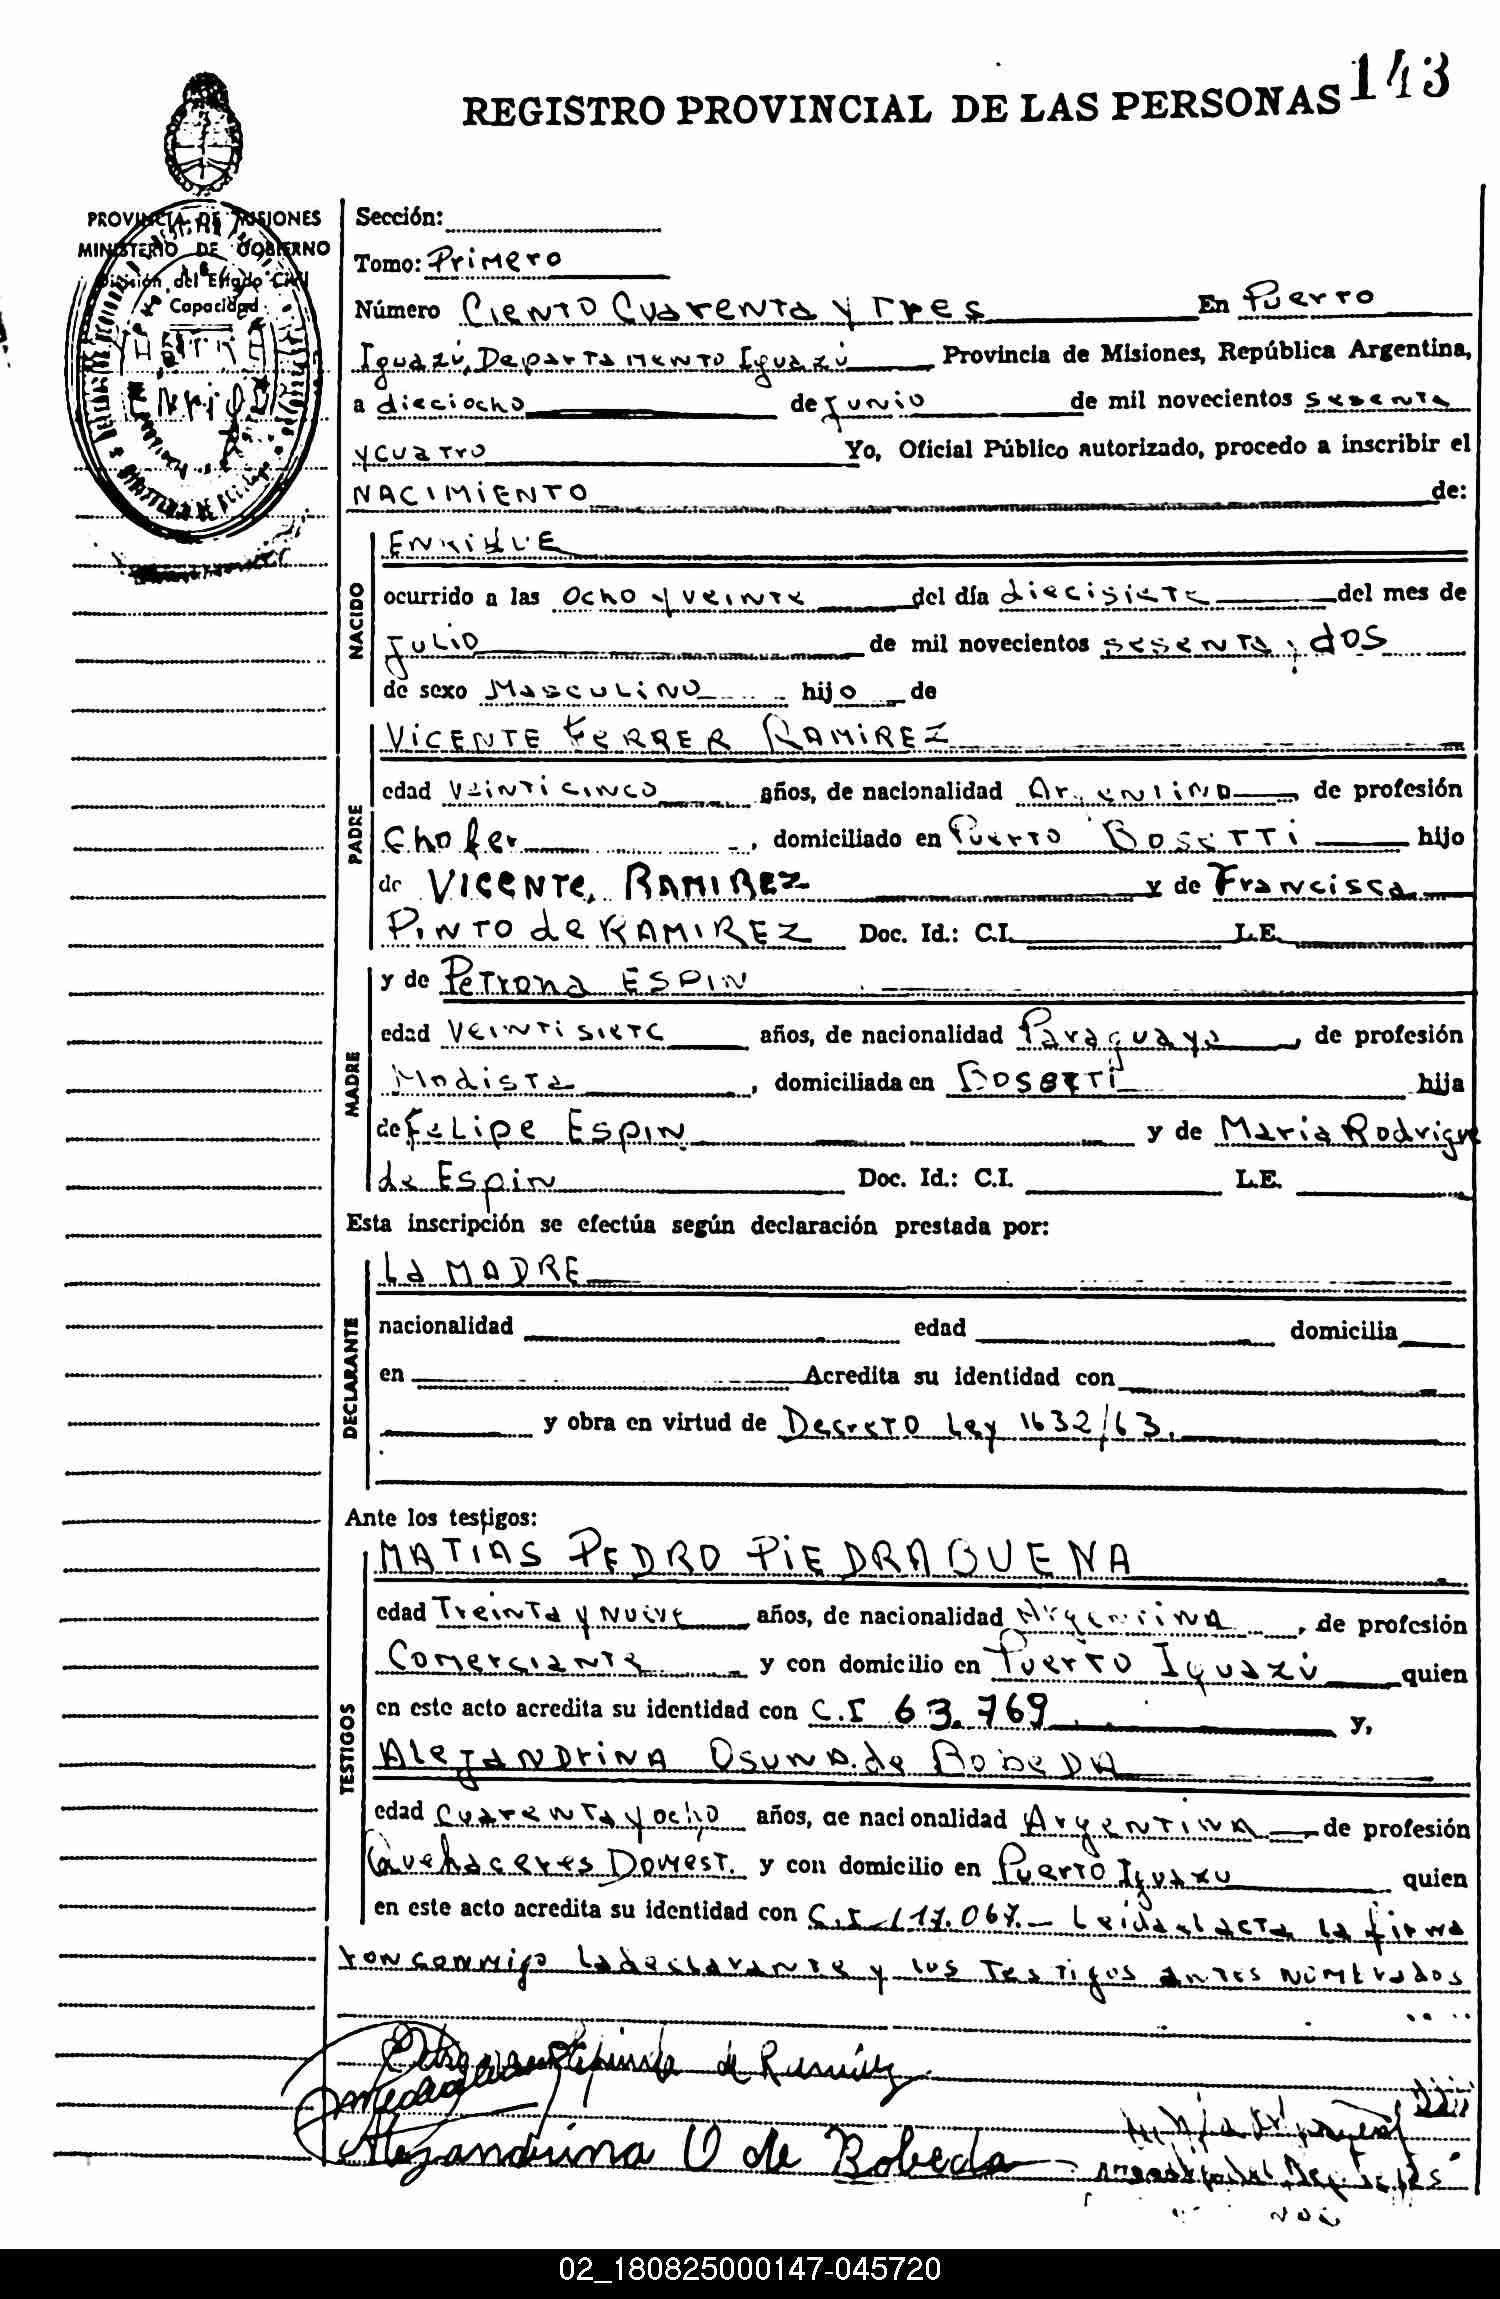 REGISTRO PROVINCIAL DE LAS PERSONAS 143
PROVINCIA DE MISIONES
MINISTERIO DE GOBIERNO
División del Estado Civil
Capacidad
Sección:
Tomo: Primero
Número Ciento Cuarenta y Tres En Puerto
Iguazú, Departamento Iguazú Provincia de Misiones, República Argentina,
a dieciocho de Junio de mil novecientos sesenta
y cuatro Yo, Oficial Público autorizado, procedo a inscribir el
NACIMIENTO de:
NACIDO
ENRIQUE
ocurrido a las Ocho y veinte del día diecisiete del mes de
Julio de mil novecientos sesenta y dos
de sexo Masculino hijo de
PADRE
VICENTE FERRER RAMIREZ
edad Veinticinco años, de nacionalidad Argentino de profesión
Chofer, domiciliado en Puerto Bosetti hijo
de VICENTE, RAMIREZ y de Francisca
PINTO de RAMIREZ Doc. Id.: C.I. L.E.
MADRE
y de Petrona ESPIN
edad Veintisiete años, de nacionalidad Paraguaya, de profesión
Modista, domiciliada en Bosetti hija
de Felipe Espin y de Maria Rodrigue
de Espin Doc. Id.: C.I. L.E.
Esta inscripción se efectúa según declaración prestada por:
DECLARANTE
La MADRE
nacionalidad edad domicilia
en Acredita su identidad con
y obra en virtud de Decreto Ley 1632/63.
Ante los testigos:
TESTIGOS
MATIAS PEDRO PIEDRABUENA
edad Treinta y nueve años, de nacionalidad Argentina, de profesión
Comerciante y con domicilio en Puerto Iguazú quien
en este acto acredita su identidad con C.I 63.769 y,
Alejandrina Osuna de Bobeda
edad Cuarenta y ocho años, de nacionalidad Argentina, de profesión
Quehaceres Domest. y con domicilio en Puerto Iguazu quien
en este acto acredita su identidad con C.I 117.067.- Leida el acta, la firma
ron conmigo la declarante y los testigos antes nombrados
de Ramirez
Alejandrina O de Bobeda
02_180825000147-045720